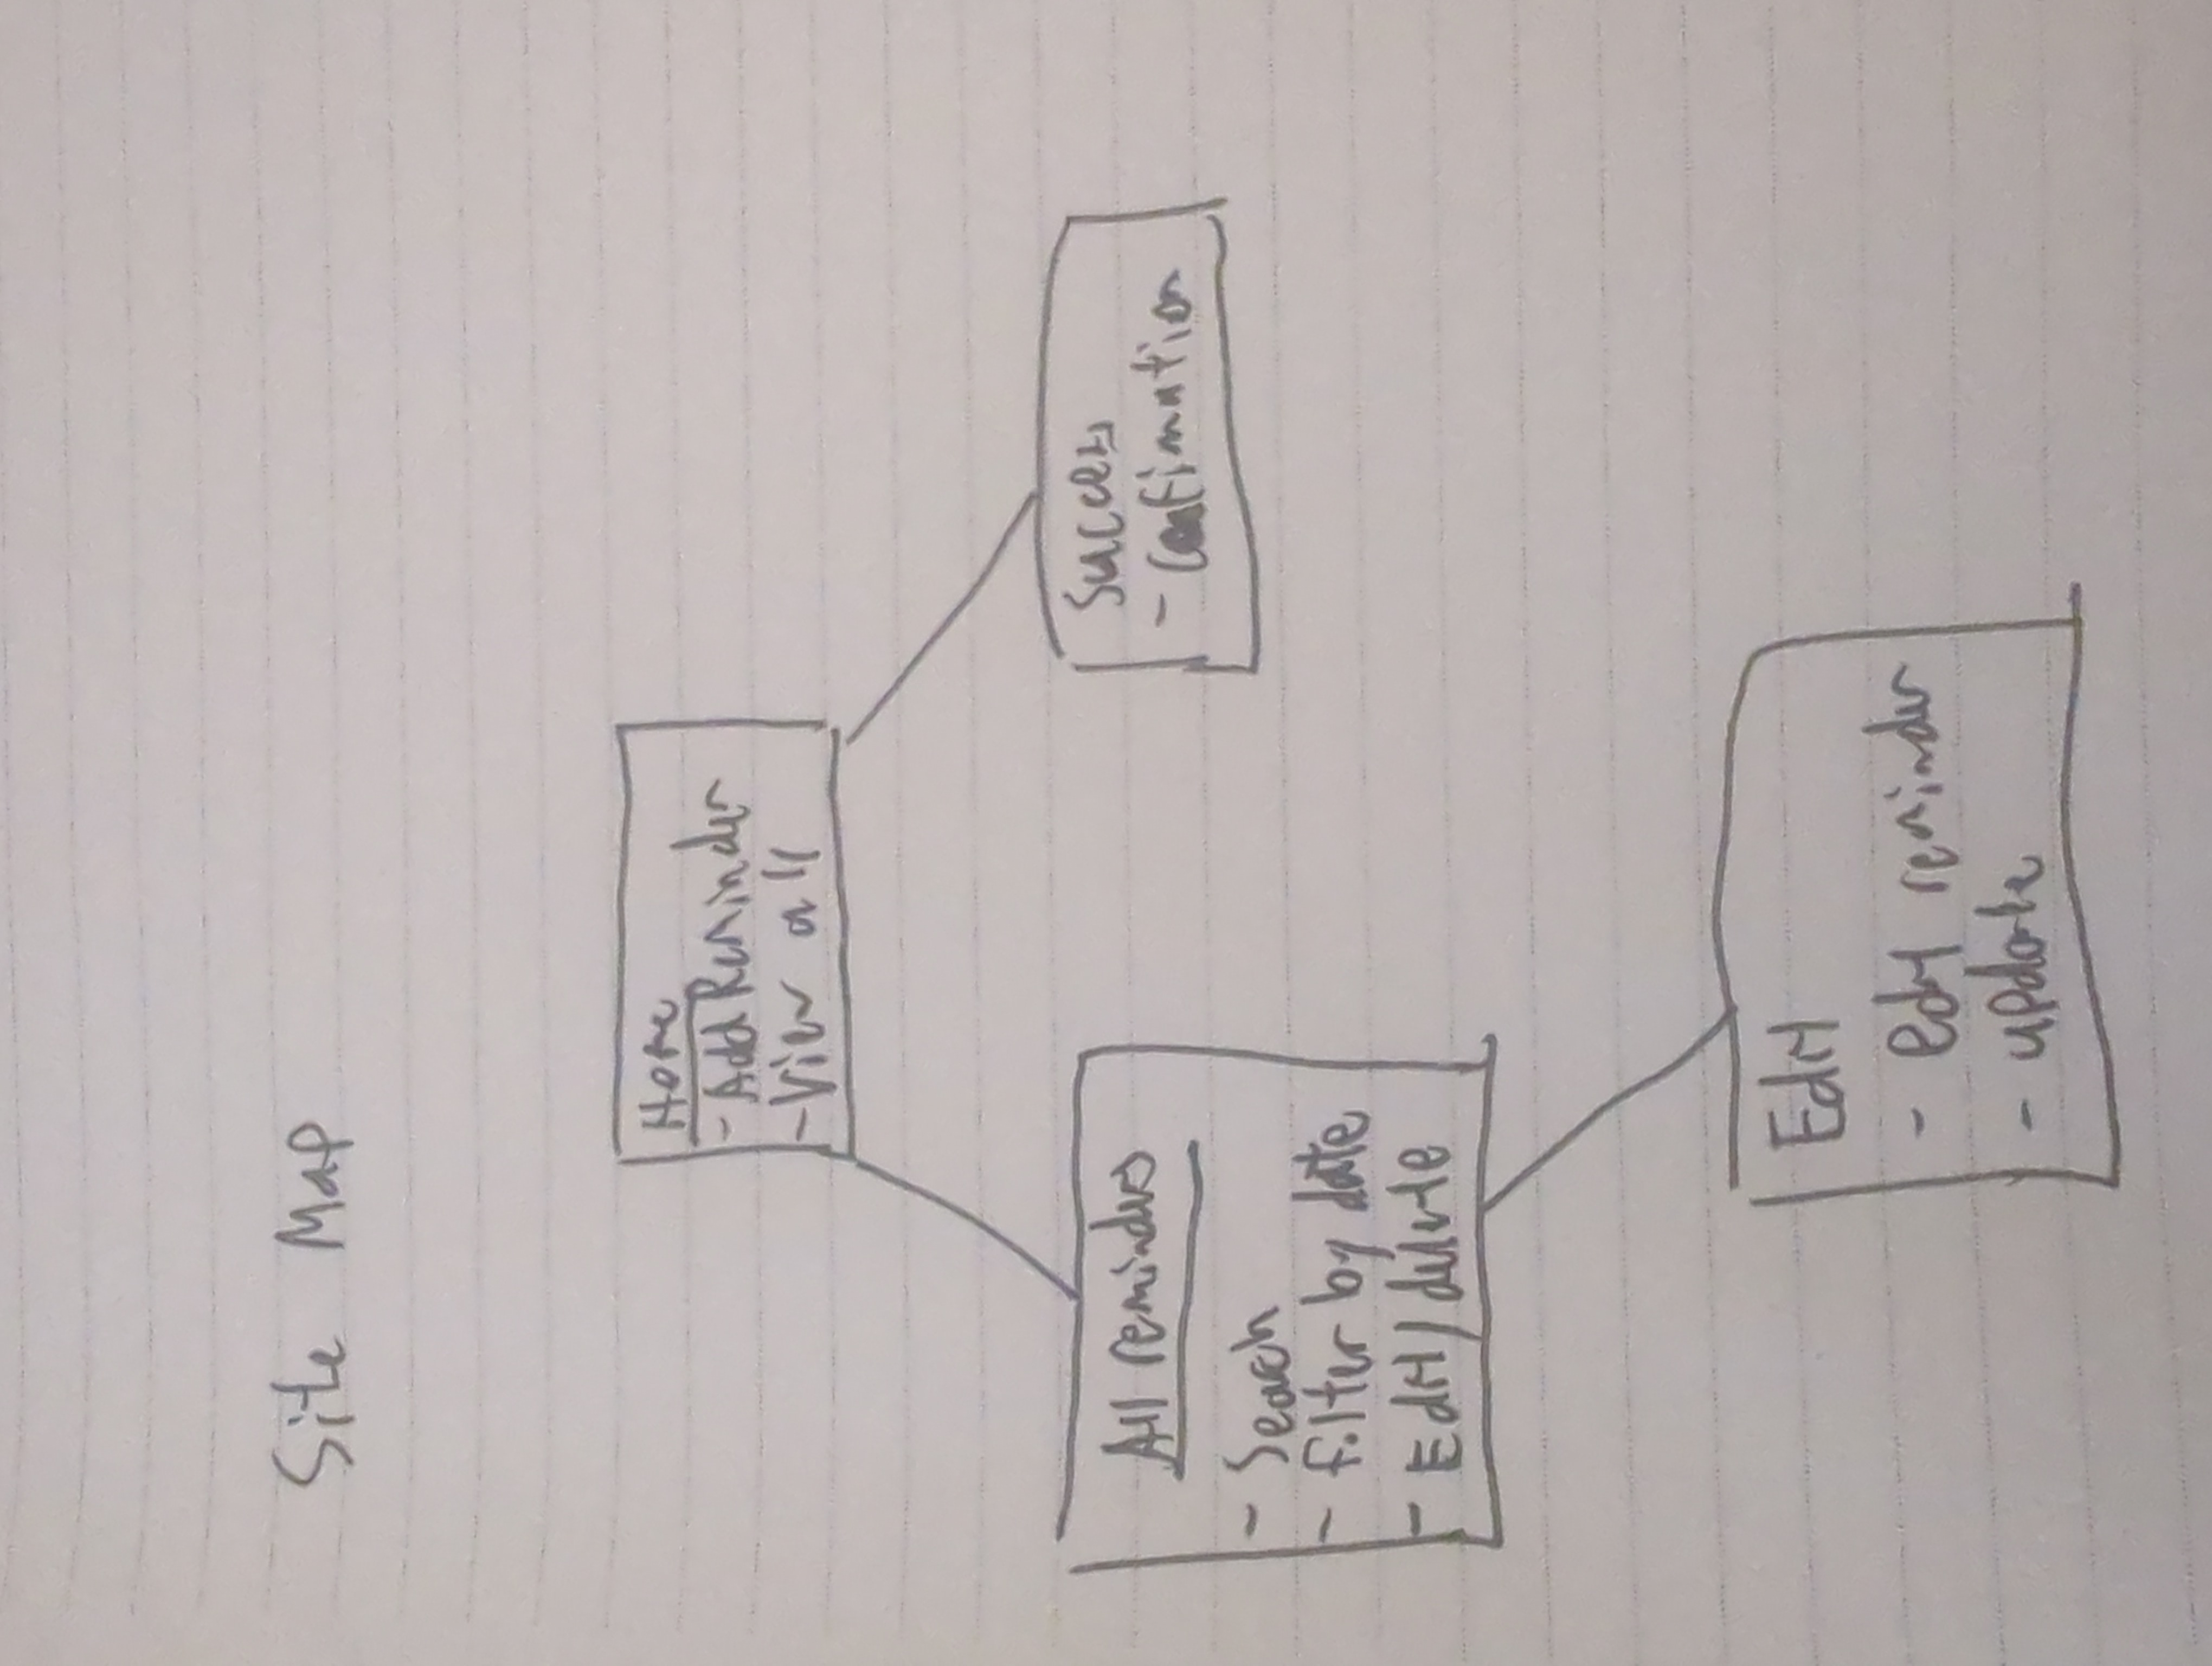 Site Map
Home
- Add Reminder
- View all
All reminders
- Search
- filter by date
- Edit/delete
Success
- Confimation
Edit
- edit reminder
- update